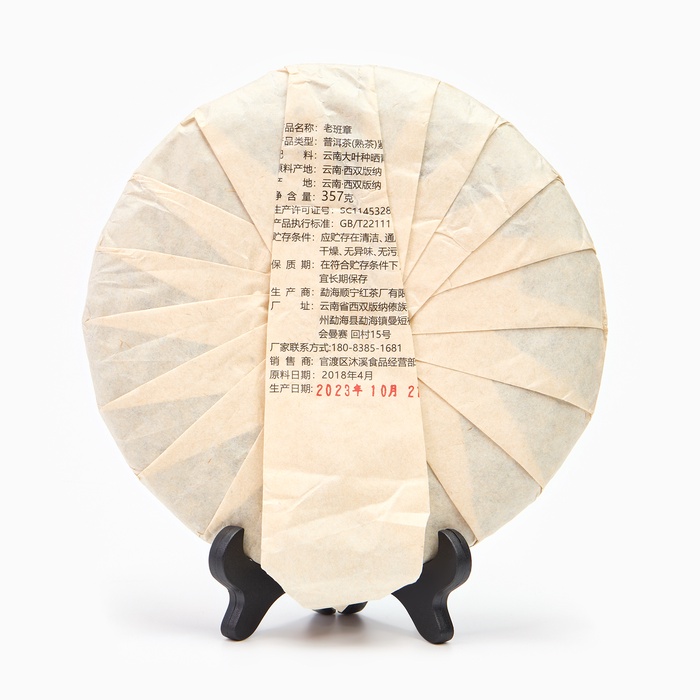 品名称：老班章
品类型：普洱茶(熟茶)
料：云南大叶种晒
料产地：云南·西双版纳
地：云南·西双版纳
净 含 量：357克
生产许可证号：SC1145328
产品执行标准：GB/T22111
贮存条件：应贮存在清洁、通
干燥、无异味、无污
保 质 期：在符合贮存条件下
宜长期保存
生 产 商：勐海顺宁红茶厂有限
厂 址：云南省西双版纳傣族
州勐海县勐海镇曼短
会曼赛 回村15号
厂家联系方式:180-8385-1681
销 售 商：官渡区沐溪食品经营部
原料日期：2018年4月
生产日期:2023年 10月 2